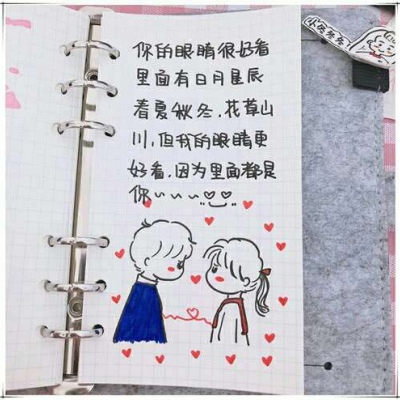 你的眼睛很好看
里面有日月星辰
春夏秋冬,花草山
川,但我的眼睛更
好看,因为里面都是
你